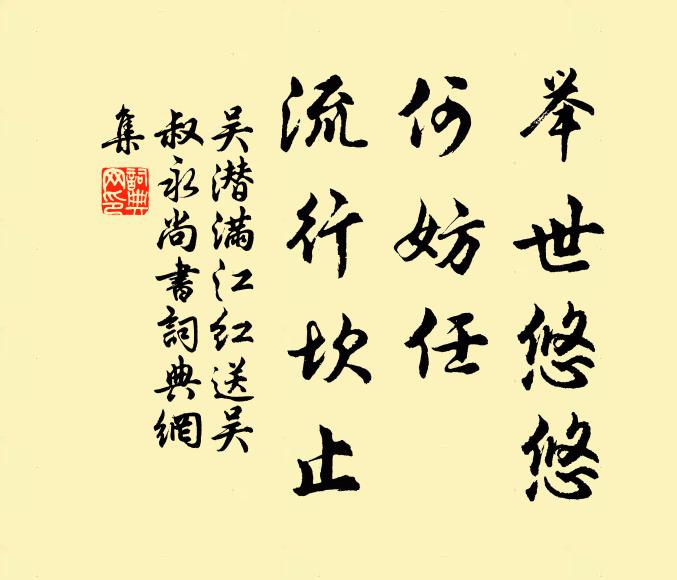 举世悠悠
何妨任
流行坎止
吴潜满江红送吴
叔永尚书詞典網
集
詞典
网印